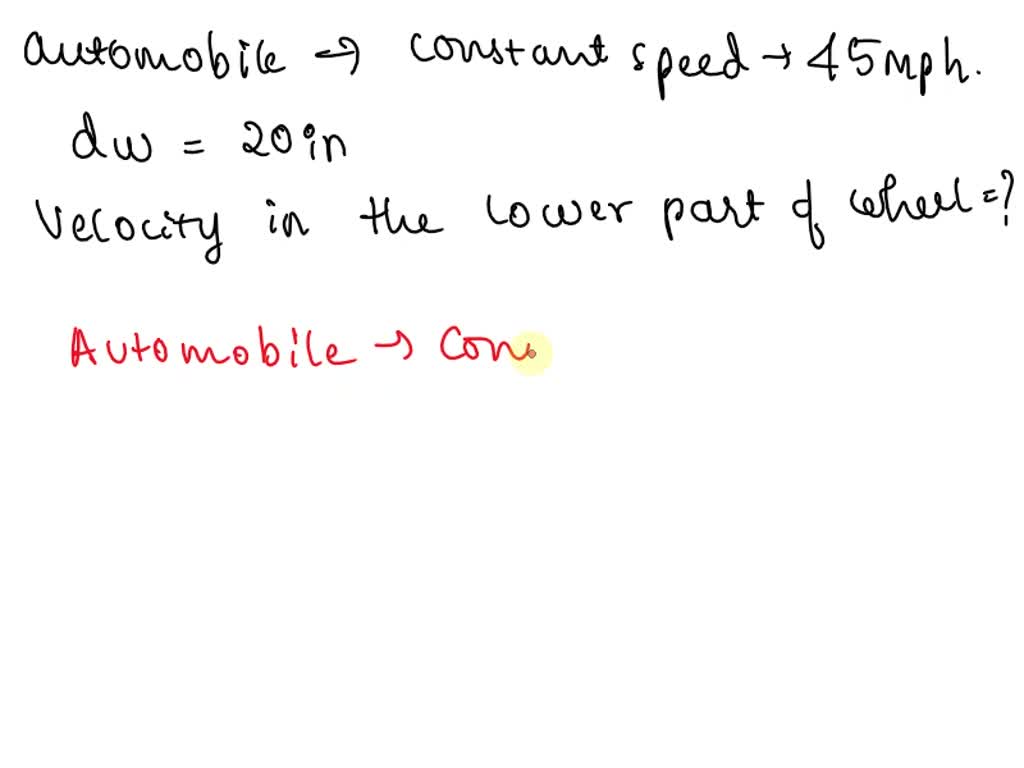 automobile → constant speed → 45mph.
dw = 20in
Velocity in the lower part of wheel=?
Automobile → Con